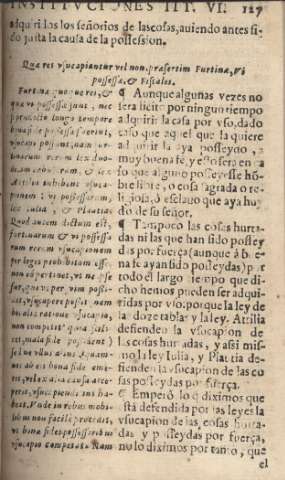 INSTITVCIONES IIT. VI. 127
adquiri los los señorios de las cosas, auiendo antes si
do justa la causa de la possession.
Quæ res vsucapiantur vel non, præsertim Furtiuæ, Vi
possessæ, & Fiscales.
Furtiuæ quoque res, &
quæ vi possessæ sunt, nec
longo tempore
bona fide possessæ fuerint,
vsucapi possunt, nam
rerum lex duode-
& lex
Attilia inhibent vsuca-
pionem: vi possessarum,
lex Iulia, & Plautia.
Quod autem dictum est,
furtiuarum & vi possessa
rum rerum vsucapionem
per leges prohibitam esse:
non eo pertinet, vt ne ipse
fur, quiue per vim possi-
det, vsucapere possit nam
his alia ratione vsucapio,
non competit quia scili-
cet, mala fide possident)
sed ne vllus alius, quam-
uis ab eis bona fide eme-
rit, vel ex alia causa acce-
perit, vsucapiendi ius ha-
beat. Vnde in rebus mobi-
libus non facile procedit,
vt bonæ fidei possessoribus
vsucapio competat. Nam
¶ Aunque algunas vezes no
sera licito por ningun tiempo
adquirir la cosa por vso, dado
caso que aquel que la quiere
adquirir la aya posseydo, a
muy buena fè, y esto sera en ca
so que alguno posseyesse hõ-
bre libre, o cosa sagrada o re-
ligiosa, ó esclauo que aya huy
do de su señor.
¶ Tampoco las cosas hurta-
das ni las que han sido possey
das por fuerça (aunque á bue-
na fe ayan sido posseydas) por
todo el largo tiempo que di-
cho hemos pueden ser adqui-
ridas por vso: porque la ley de
las doze tablas y la ley. Attilia
defienden la vsucapion de
las cosas hurtadas, y assi mis-
mo la ley Iulia, y Plautia de-
fienden la vsucapion de las co
sas posseydas por fuerça.
¶ Emperó lo q̃ diximos que
está defendida por las leyes la
vsucapion de las, cosas hurta-
das y posseydas por fuerça,
no lo diximos por tanto, que
el